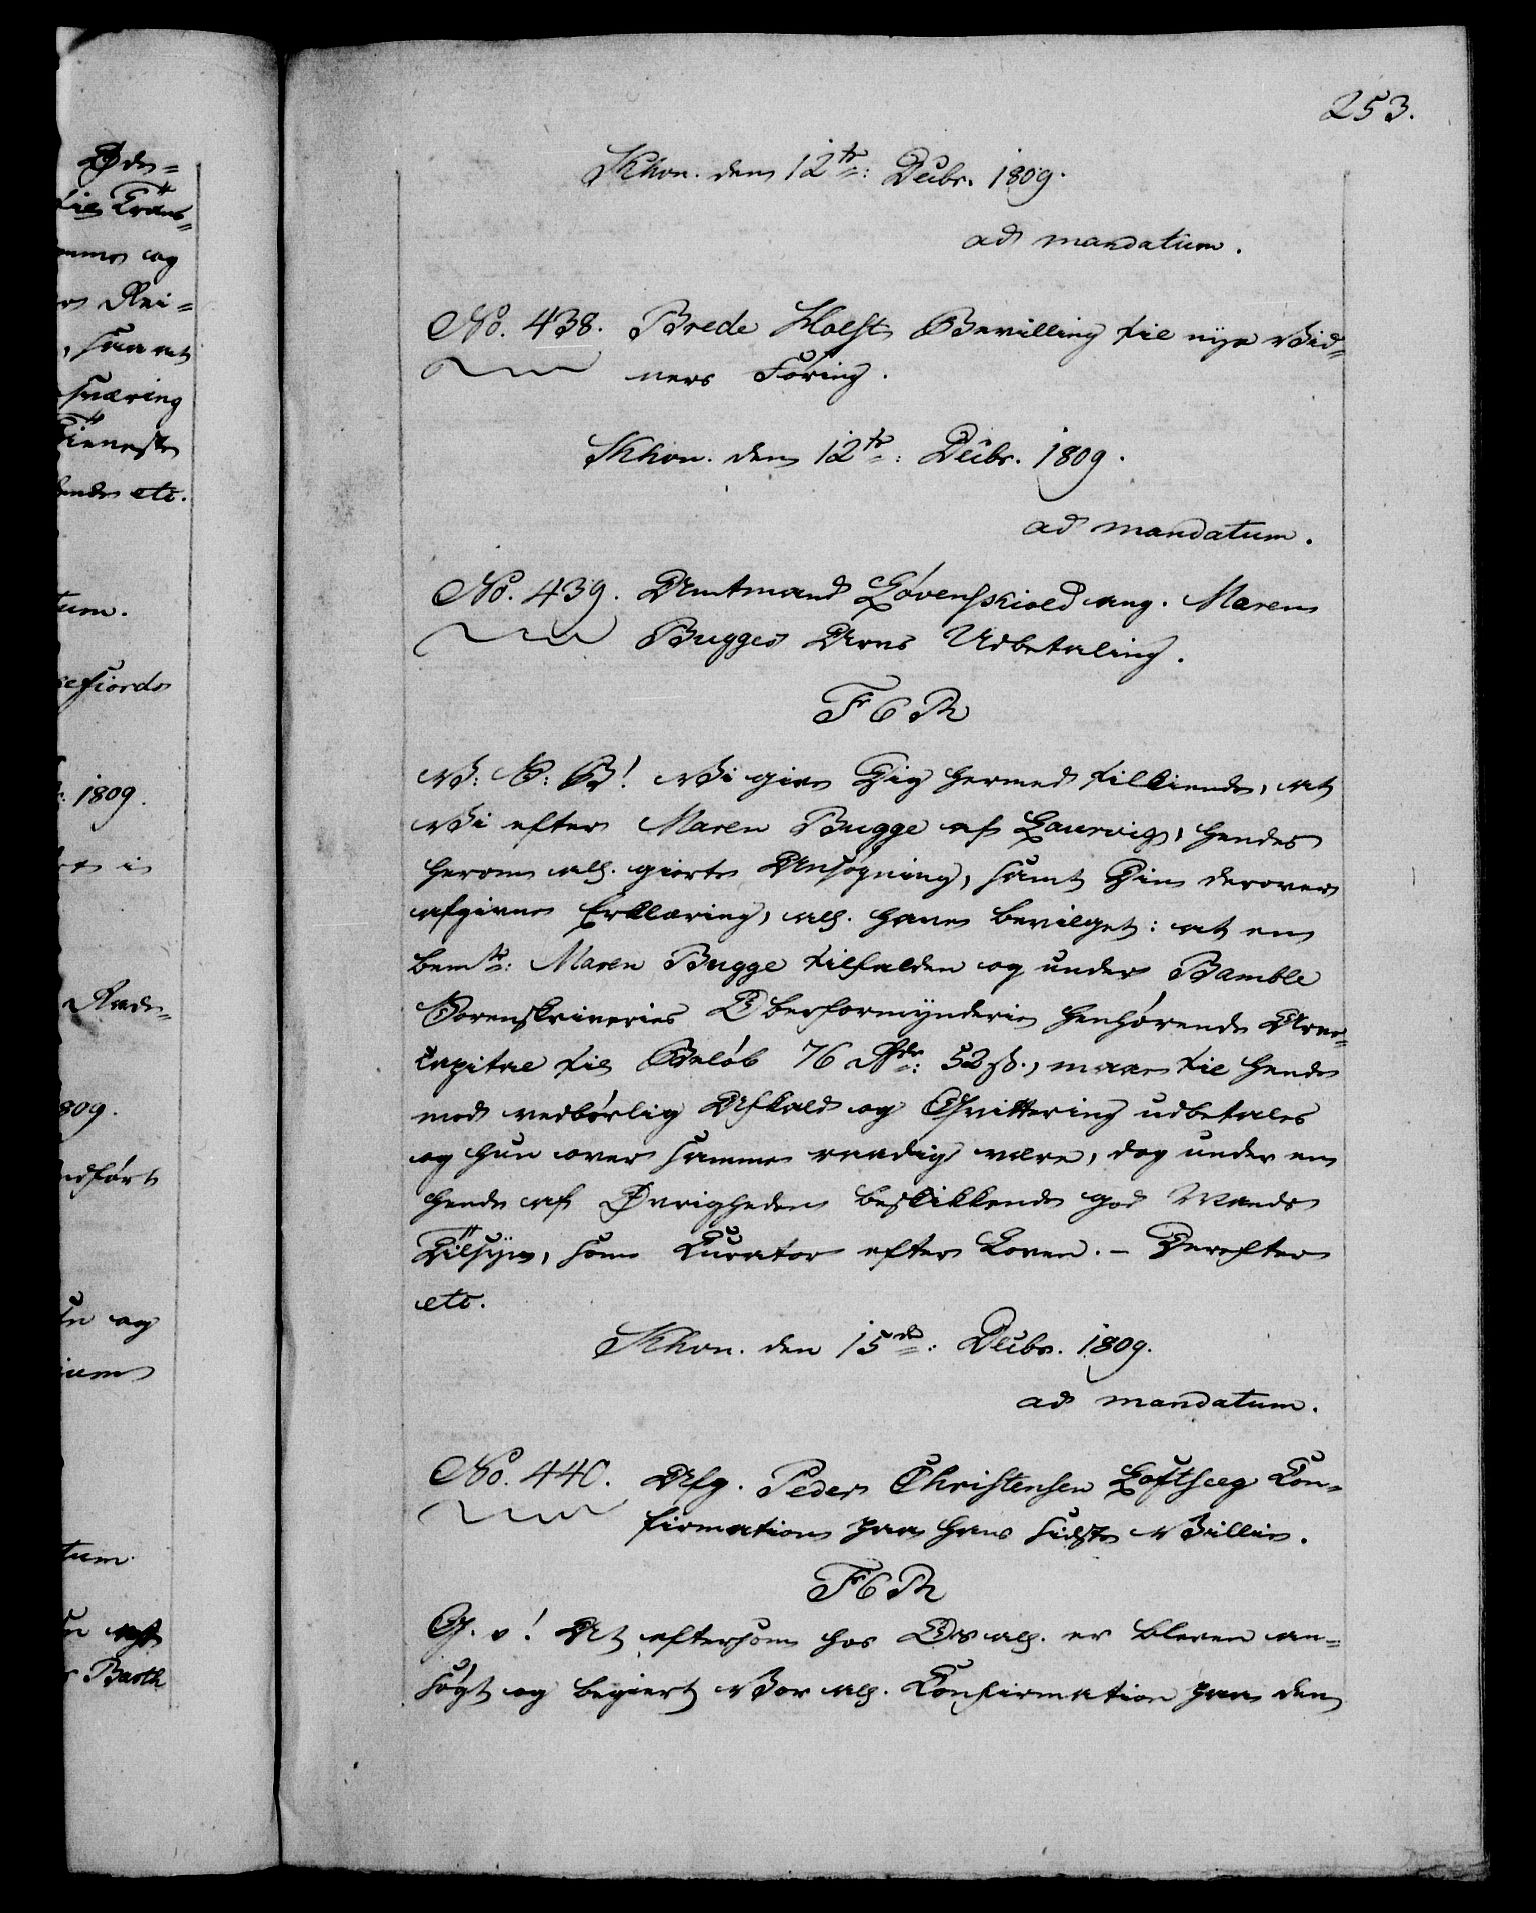 253.
Khvn. den 12te: Decbr. 1809.
ad mandatum.
No. 438. Brede Holst Bevilling til nye Vid=
ners Føring.
Khvn. den 12te: Decbr. 1809.
ad mandatum.
No. 439. Amtmand Løvenskiold ang. Maren
Bugges Arvs Udbetaling.
F 6 R
V: S: G! Vi give Dig hermed tilkiende, at
Vi efter Maren Bugge af Laurvig, hendes
herom all. giorte Ansøgning, samt Din derover
afgivne Erklæring, all. have bevilget: at en
bemte: Maren Bugge tilfalden og under Bamble
Sorenskriveries Oberformynderie henhørende Arve=
capital til Beløb 76 Rdr: 52 s., maae til hende
mod vedbørlig Afkald og Qvittering udbetales
og hun over samme raadig være, dog under en
hende af Øvrigheden beskikkende god Mands
Tilsyn, som Curator efter Loven. - Derefter
etc.
Khvn. den 15de: Decbr. 1809.
ad mandatum.
No. 440. Afg. Peder Christensen Loftseg Con=
firmation paa hans sidste Villie.
F 6 R
G. v! At eftersom hos Os all. er bleven an=
søgt og begiert Vor all. Confirmation paa den
Øde=
og
Rei=
, saa at
sværing
Tieneste
etc.
tum.
1809.
i
809.
og
tum
Barth